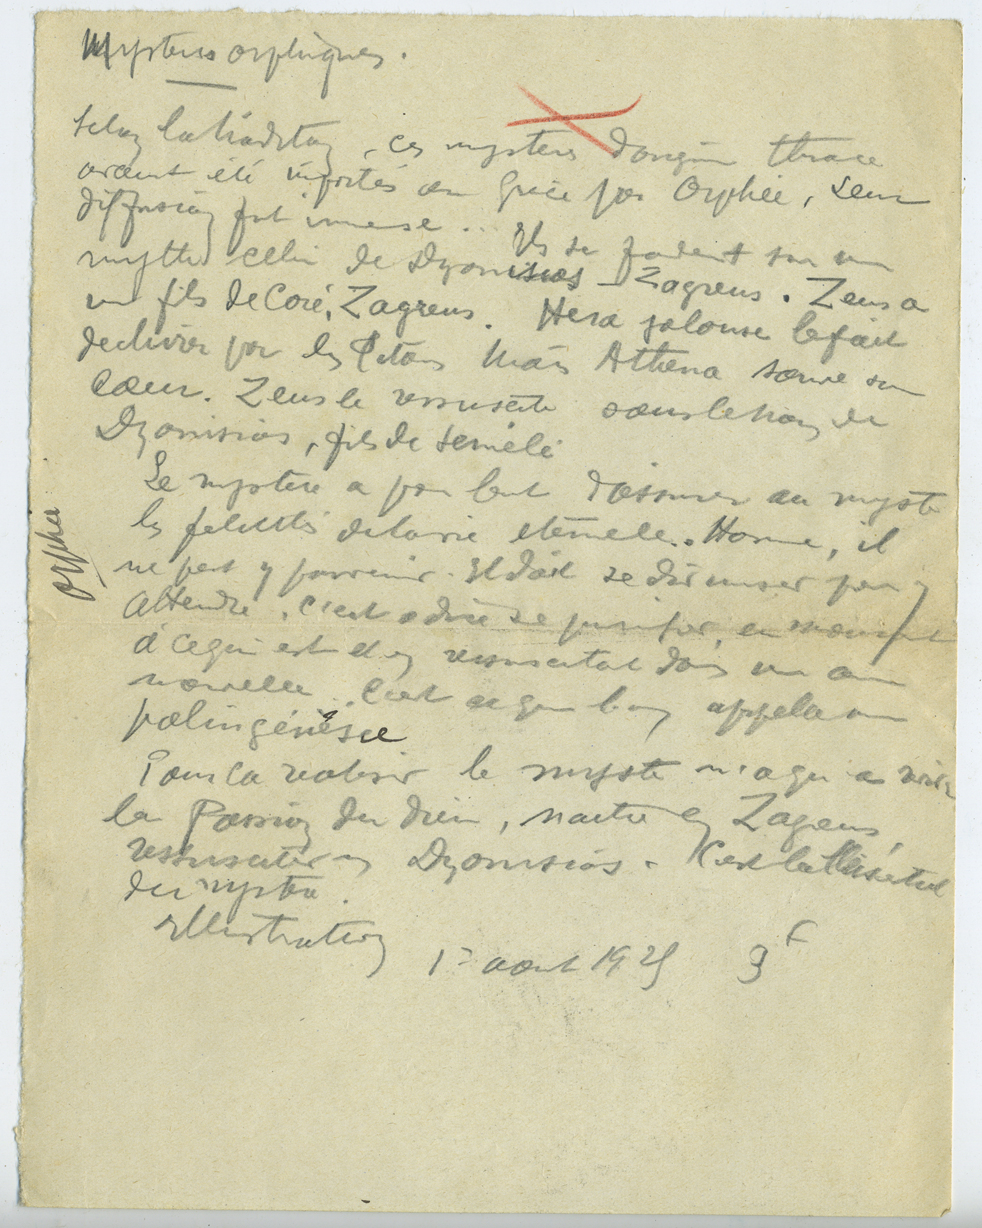 Mystères orphiques.
Selon la tradition, ces mystères d'origine thrace
avaient été importés en Grèce par Orphée, Leur
diffusion fut immense .. Ils se fondent sur un
mythe celui de Dyonisios - Zagreus. Zeus a
un fils de Coré, Zagreus. Hera jalouse le fait
dechirer par les Titans Mais Athena sauve son
cœur. Zeus le ressuscite sous le nom de
Dyonisios, fils de Semélé
Le mystère a pour but d'assurer au myste
les felicités de la vie eternelle. Homme, il
ne peut y parvenir. Il doit se diviniser pour y
Attendre. C'est a dire se purifier, en mourant
à ce qui est et en ressuscitant dans un
nouvelle. C'est ce que l'on appela
palingénésie
Pour ça realiser le myste n'a qu'a vivre
la Passion du dieu, naitre en Zagreus,
ressusciter en Dyonisios. C'est là l'
du mystere.
Illustration 1er aout 1925 9F
Orphée